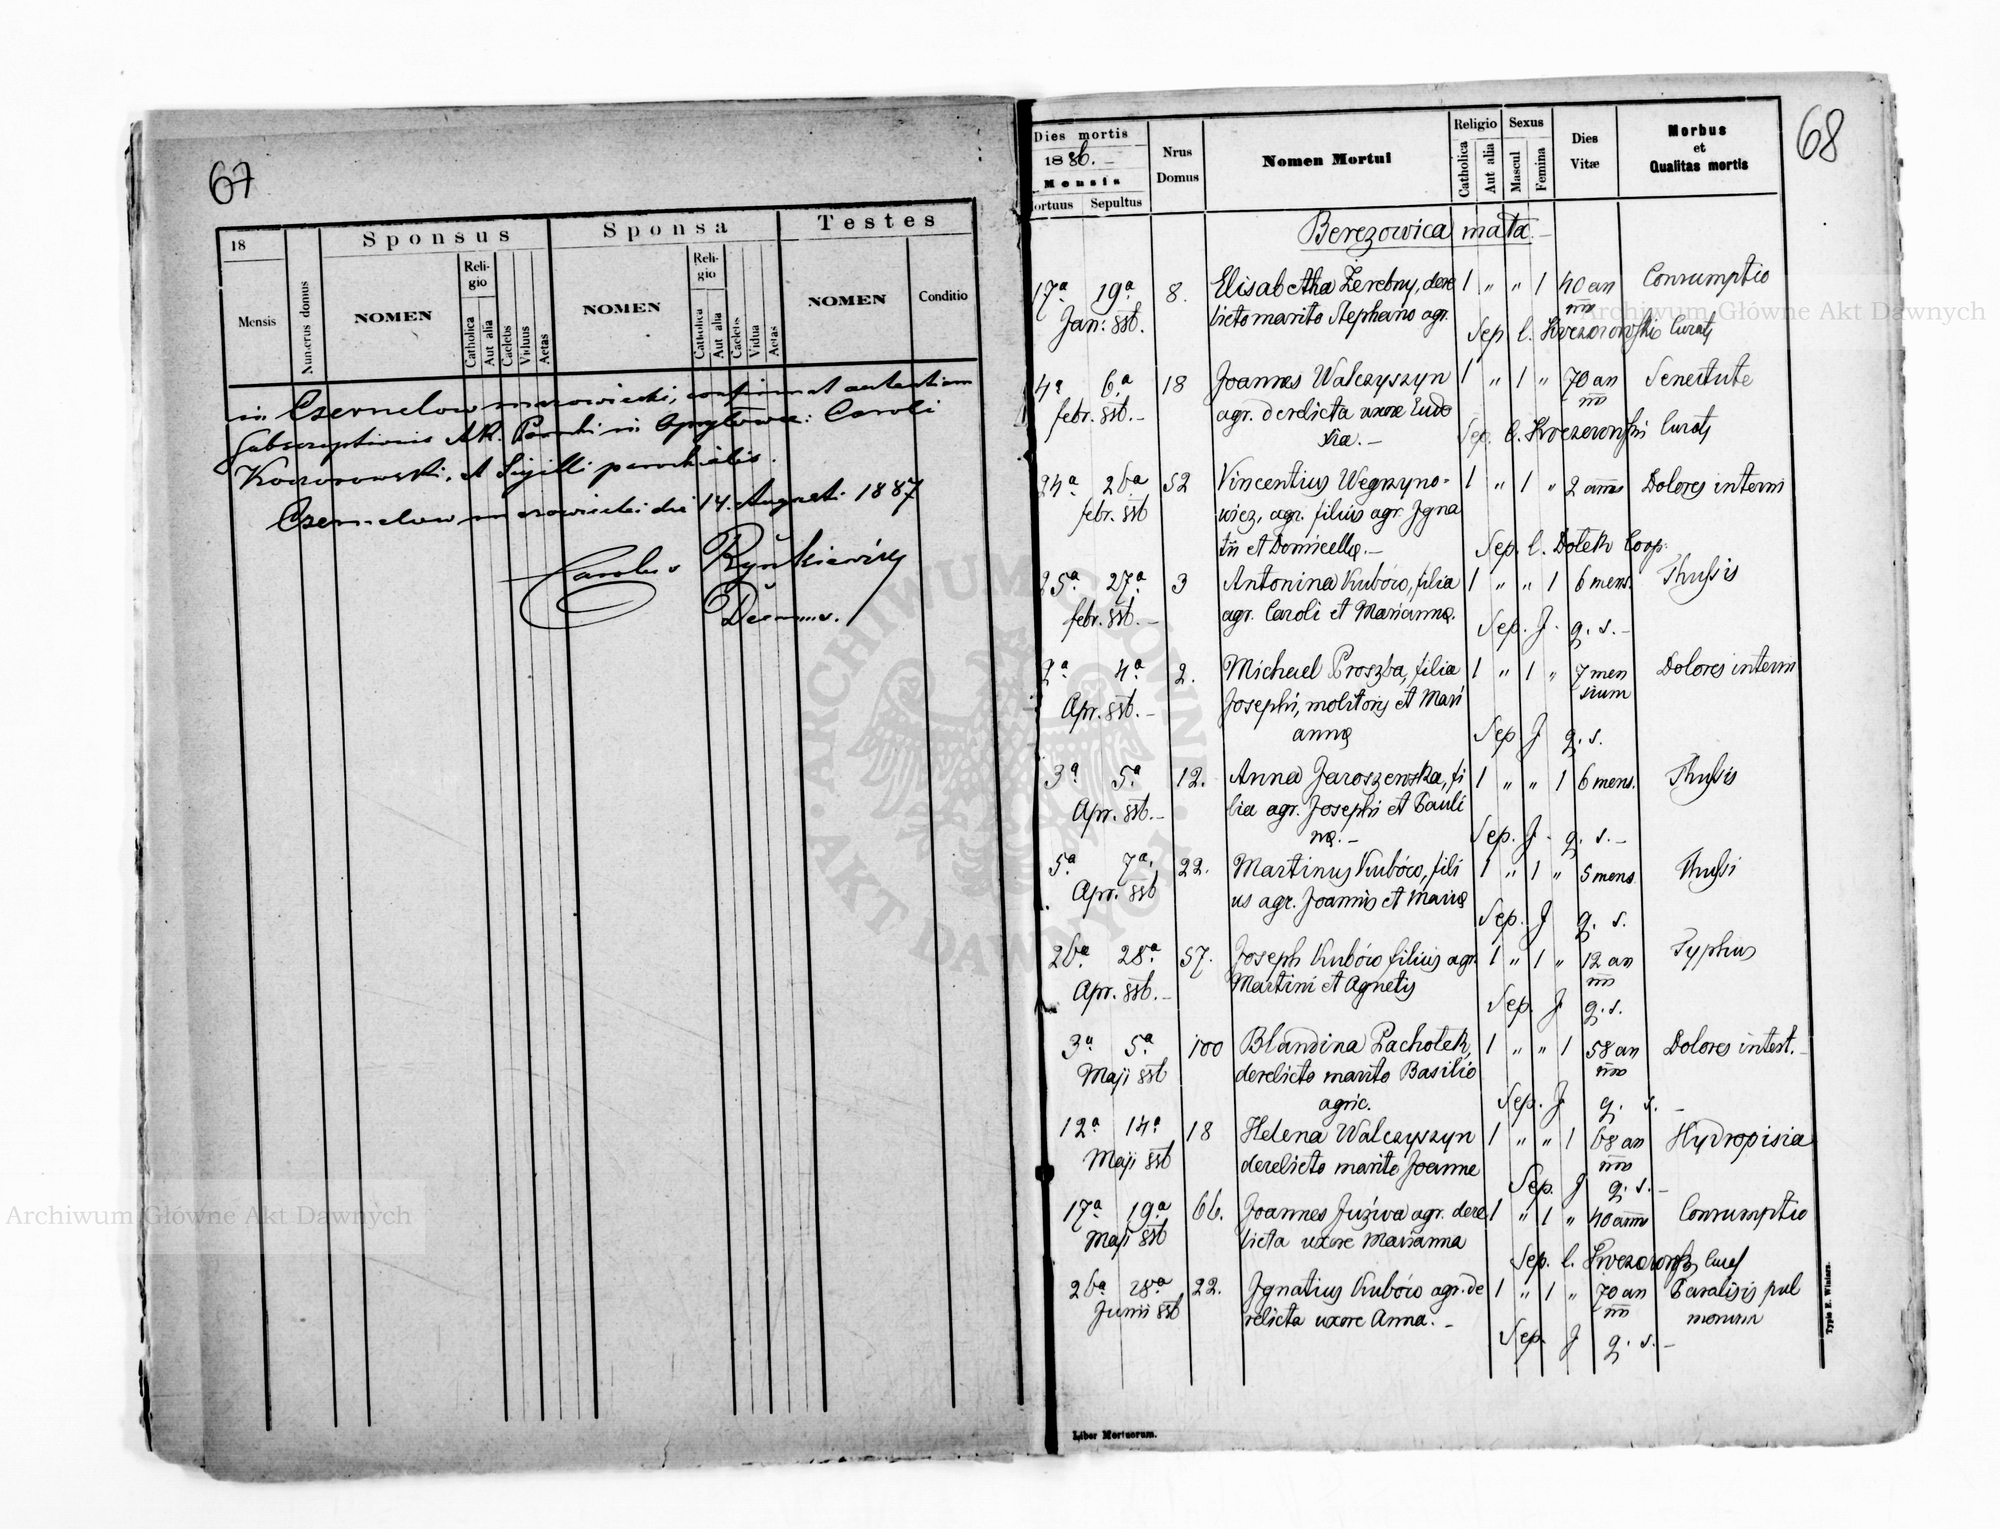 67
18
Mensis
Numerus domus
Sponsus
NOMEN
Reli-
gio
Catholica
Aut alia
Caelebs
Viduus
Aetas
Sponsa
NOMEN
Reli-
gio
Catholica
Aut alia
Caelebs
Vidua
Aetas
Testes
NOMEN
Conditio
in Czernelow mazowiecki, confirmat
Subscriptionis Parochi in Opryłowce: Caroli
et Sigilli parochialis.
Czernelow mazowiecki die 14. Augusti 1887
Carolus
68
Dies mortis
1886. –
Mensis
ortuus Sepultus
Nrus
Domus
Nomen Mortui
Religio
Catholica
Aut alia
Sexus
Mascul
Femina
Dies
Vitæ
Morbus
et
Qualitas mortis
Berezowica mała. –
17ª 19ª 8. Elisabetha Żerebny, dere 1 " " 1 40 an Consumptio
Jan: 886. licto marito Stephano agr. nis
Sep. C.
4ª 6ª 18 Joannes Walczyszyn 1 " 1 " 70 an Senectute
febr. 886. – agr. derelicta uxore Eudo nis
xia. – Sep. C.
24ª 26ª 52 Vincentius Węgrzyno- 1 " 1 " 2 annis Dolores interni
febr. 886 wicz, agr. filius agr. Igna
tii et Domicellę. – Sep. C. Dołek Coop.
25ª 27ª 3 Antonina Kubów, filia 1 " " 1 6 mens. Thussis
febr. 886. – agr. Caroli et Mariannę. Sep. J. q. s. –
2ª 4ª 2. Michael Proszba, filia 1 " 1 " 7 men Dolores interni
Apr. 886. – Josephi, molitoris et Mari sium
annę Sep. J. q. s.
3ª 5ª 12. Anna Jaroszewska, fi 1 " " 1 6 mens. Thussis
Apr. 886. – lia agr. Josephi et Pauli
nę. – Sep. J. q. s. –
5ª 7ª 22. Martinus Kubów, fili 1 " 1 " 5 mens Thussi
Apr. 886 us agr. Joannis et Marię
Sep. J q. s.
26ª 28ª 57. Joseph Kubów filius agr. 1 " 1 " 12 an Typhus
Apr. 886. – Martini et Agnetis nis
Sep. J q. s.
3ª 5ª 100 Blandina Pachołek, 1 " " 1 58 an Dolores intest. –
Maji 886 derelicto marito Basilio nis
agric. Sep. J q. s. –
12ª 14ª 18 Helena Walczyszyn 1 " " 1 68 an Hydropisia
Maji 886 derelicto marito Joanne nis
Sep. J q. s. –
17ª 19ª 66. Joannes Juzwa agr. dere 1 " 1 " 40 annis Consumptio
Maji 886 licta uxore Marianna
Sep. C.
26ª 28ª 22. Ignatius Kubów agr. de 1 " 1 " 70 an Paralisis pul
Junii 886 relicta uxore Anna. – nis monum
Sep. J q. s. –
Typis E. Winiarz.
Liber Mortuorum.
Archiwum Główne Akt Dawnych
Archiwum Główne Akt Dawnych
ARCHIWUM GŁÓWNE · AKT DAWNYCH ·